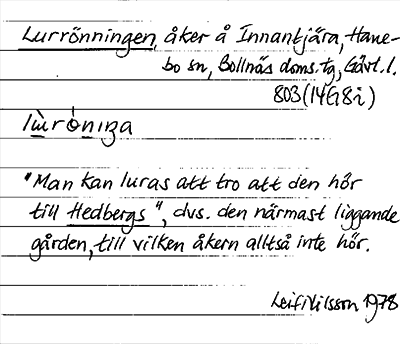 Lurrönningen, åker å Innantjära, Hane-
bo sn, Bollnäs doms.tg, Gävl.l.
803 (14G8i)
lùrṍnıŋa
"Man kan luras att tro att den hör
till Hedbergs", dvs. den närmast liggande
gården, till vilken åkern alltså inte hör.
Leif Nilsson 1978